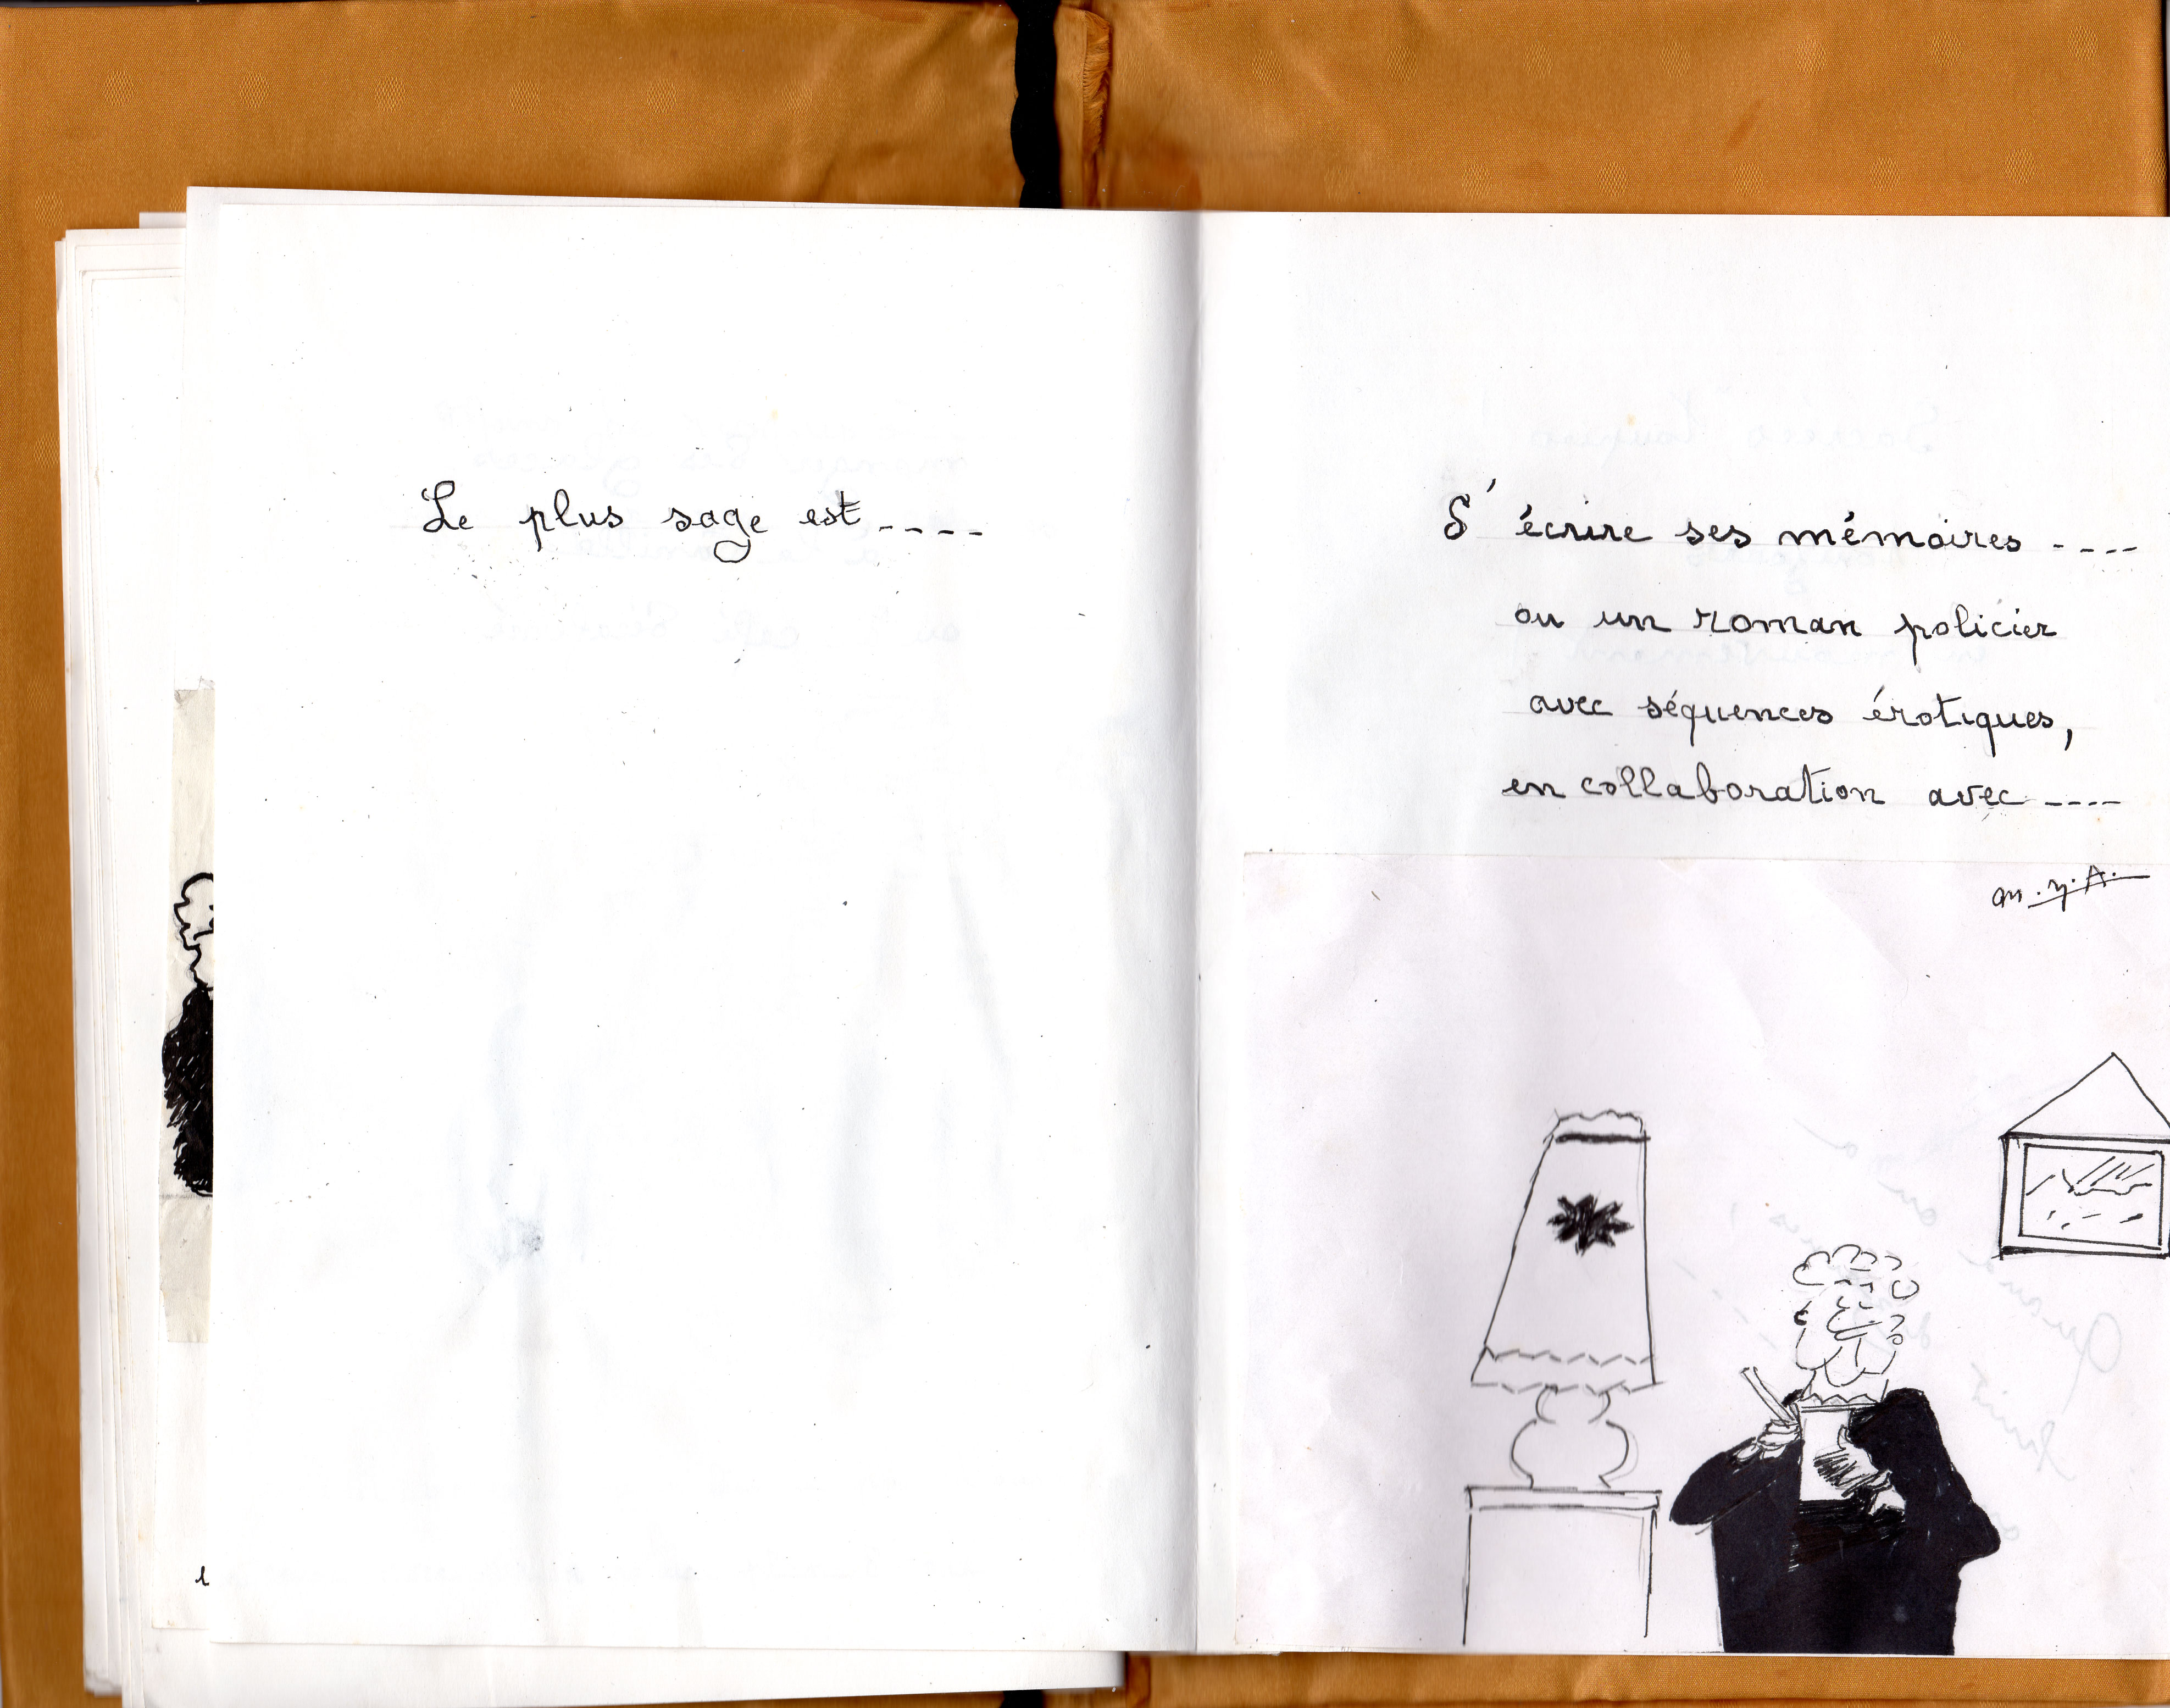 Le plus sage est ----
S'écrire ses mémoires ----
ou un roman policier
avec séquences érotiques,
en collaboration avec ----